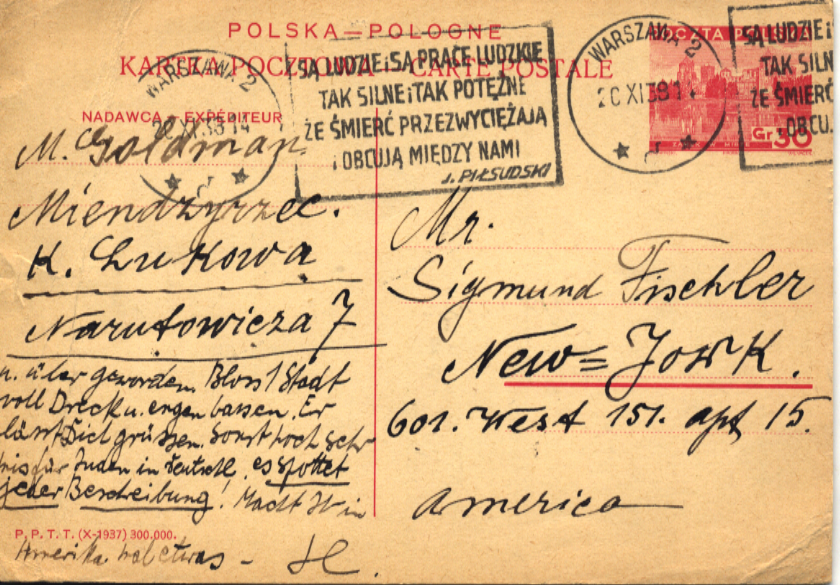 POLSKA—POLOGNE
KARTKA POCZTOWA—CARTE POSTALE
WARSZAWA 2
20 XI 38 14
SĄ LUDZIE i SĄ PRACE LUDZKIE
TAK SILNE i TAK POTĘŻNE
ŻE ŚMIERĆ PRZEZWYCIĘŻAJĄ
i OBCUJĄ MIĘDZY NAMI
J. PIŁSUDSKI
WARSZAWA 2
20 XI 38 14
POCZTA POLSKA
Gr 30
SĄ LUDZIE i
TAK SILN
ŻE ŚMIERĆ
i OBCU
NADAWCA—EXPÉDITEUR
M. Goldman
Miendzyrzec.
K. Łukowa
Narutowicza 7
u. älter geworden. Bloss 1 Stadt
voll Dreck u. engen Gassen. Er
lässt Dich grüssen. Sonst noch sehr
für Juden in Deutschl. es spottet
jeder Beschreibung! Macht Ihr in
Amerika etwas —
P. P. T. T. (X-1937) 300.000.
Mr.
Sigmund Fischler
New=York.
601. West 151. apt 15.
America